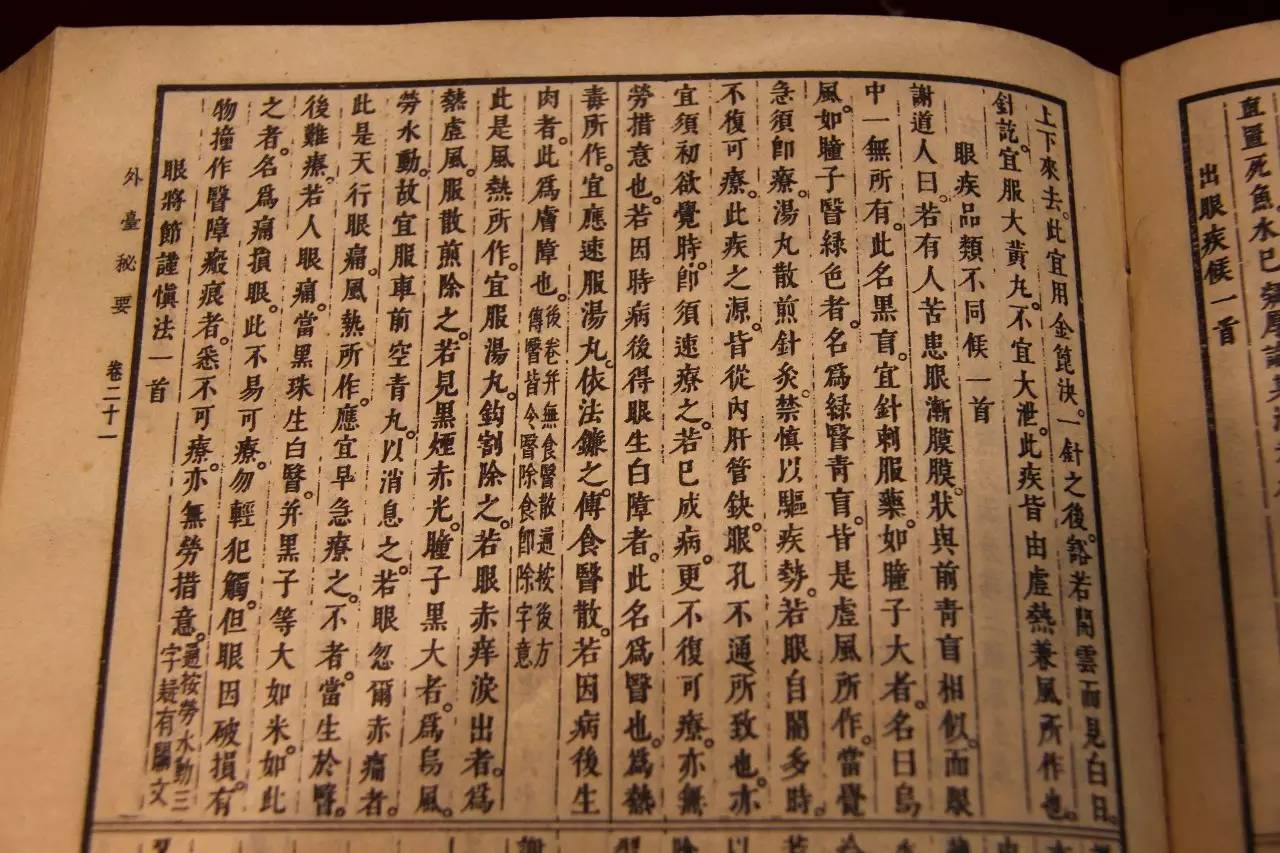 直
死魚水
出眼疾候一首
上下來去。此宜用金篦決。一針之後。豁若開雲而見白日。
針訖。宜服大黃丸。不宜大泄。此疾皆由虛熱兼風所作也。
眼疾品類不同候一首
謝道人曰。若有人苦患眼漸膜膜。狀與前青盲相似。而眼
中一無所有。此名黑盲。宜針刺服藥。如瞳子大者。名曰烏
風。如瞳子翳綠色者。名為綠翳青盲。皆是虛風所作。當覺
急須卽療。湯丸散煎針灸。禁慎以驅疾勢。若眼自闇多時。
不復可療。此疾之源。皆從內肝管缺。眼孔不通所致也。亦
宜須初欲覺時。卽須速療之。若已成病。更不復可療。亦無
勞措意也。若因時病後得眼生白障者。此名為翳也。為熱
毒所作。宜應速服湯丸。依法鐮之。傅食翳散。若因病後生
肉者。此為膚障也。後卷并無食翳散。通按後方
傅翳皆令翳除。食卽除字意
此是風熱所作。宜服湯丸。鈎割除之。若眼赤痒淚出者。為
熱虛風。服散煎除之。若見黑煙赤光。瞳子黑大者。為烏風。
勞水動。故宜服車前空青丸。以消息之。若眼忽爾赤痛者。
此是天行眼痛。風熱所作。應宜早急療之。不者。當生於翳。
後難療。若人眼痛。當黑珠生白翳。并黑子等大如米。如此
之者。名為痛損眼。此不易可療。勿輕犯觸。但眼因破損。有
物撞作翳障瘢痕者。悉不可療。亦無勞措意。通按勞水動三
字疑有闕文
眼將節謹慎法一首
外臺秘要 卷二十一